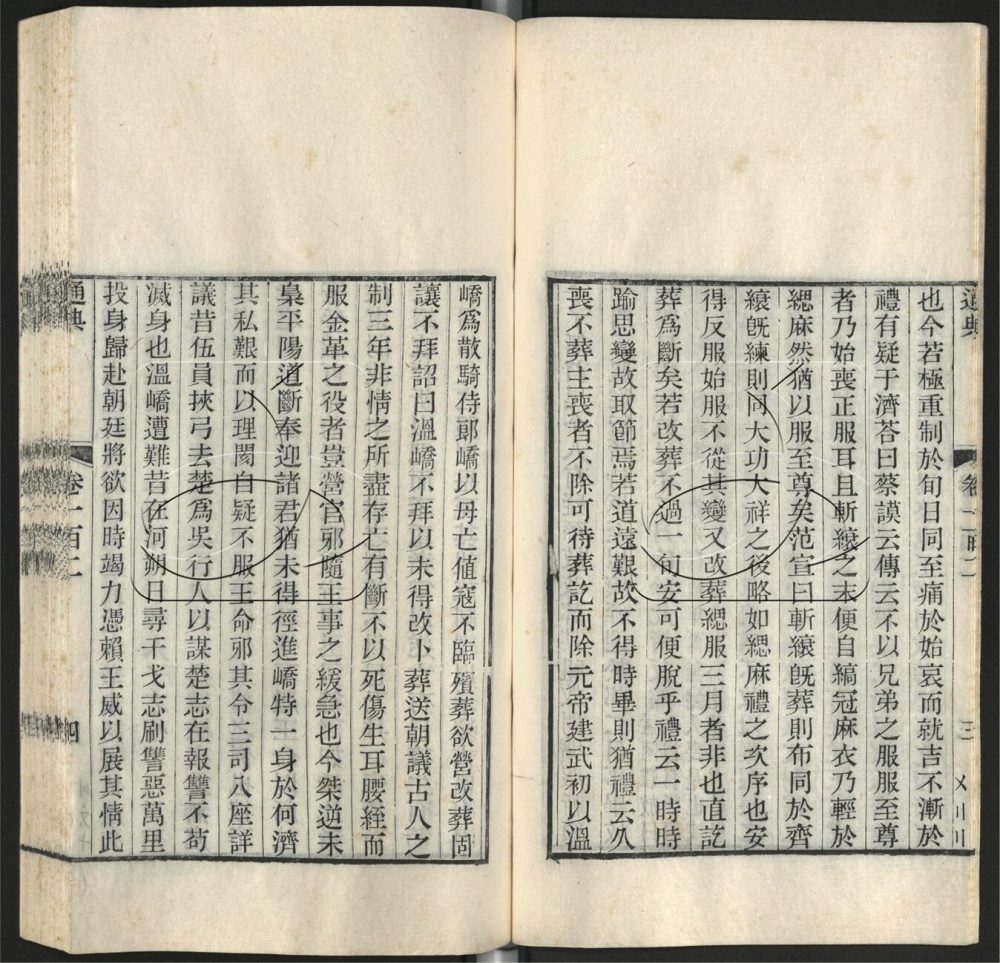 通典
卷一百二
三
〤〣〣
也今若極重制於旬日同至痛於始哀而就吉不漸於
禮有疑于濟荅曰蔡謨云傳云不以兄弟之服服至尊
者乃始喪正服耳且斬縗之末便自縞冠麻衣乃輕於
緦麻然猶以服至尊矣范宣曰斬縗旣葬則布同於齊
縗旣練則同大功大祥之後略如緦麻禮之次序也安
得反服始服不從其變又改葬緦服三月者非也直訖
葬爲斷矣若改葬不過一旬安可便脫乎禮云一時時
踰思變故取節焉若道遠艱故不得時畢則猶禮云久
喪不葬主喪者不除可待葬訖而除元帝建武初以溫
嶠爲散騎侍郞嶠以母亡値寇不臨殯葬欲營改葬固
讓不拜詔曰溫嶠不拜以未得改卜葬送朝議古人之
制三年非情之所盡存亡有斷不以死傷生耳腰絰而
服金革之役者豈營官邪隨王事之緩急也今桀逆未
梟平陽道斷奉迎諸君猶未得徑進嶠特一身於何濟
其私艱而以理閡自疑不服王命邪其令三司八座詳
議昔伍員挾弓去楚爲吳行人以謀楚志在報讐不苟
滅身也溫嶠遭難昔在河朔日尋干戈志刷讐惡萬里
投身歸赴朝廷將欲因時竭力憑賴王威以展其情此
通典
卷一百二
四